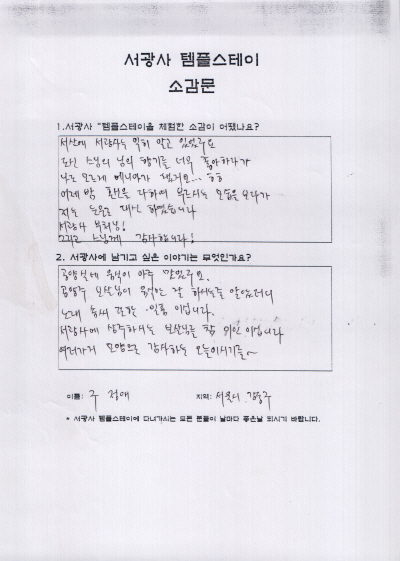 서광사 템플스테이
소감문
1.서광사 "템플스테이을 체험한 소감이 어땠나요?
서산에 서광사는 익히 알고 있었구요
도신 스님의 님의 향기를 너무 좋아하다가
나도 모르게 메니아가 됐지요... ㅎㅎ
어제 밤 혼신을 다하여 부르시는 모습을 보다가
저는 눈물로 대신 하였습니다
서광사 부처님!
그리고 스님께 감사합니다!
2. 서광사에 남기고 싶은 이야기는 무엇인가요?
공양실에 음식이 아주 맛있구요.
공양주 보살님이 음식만 잘 하시는줄 알았더니
노래 솜씨 또한 일품 이십니다.
서광사에 상주하시는 보살님들 참 미인 이십니다
여러가지 모양으로 감사하는 오늘이시기를~
이름: 구 정애
지역: 서울시 강동구
* 서광사 템플스테이에 다녀가시는 모든 분들이 날마다 좋은날 되시기 바랍니다.